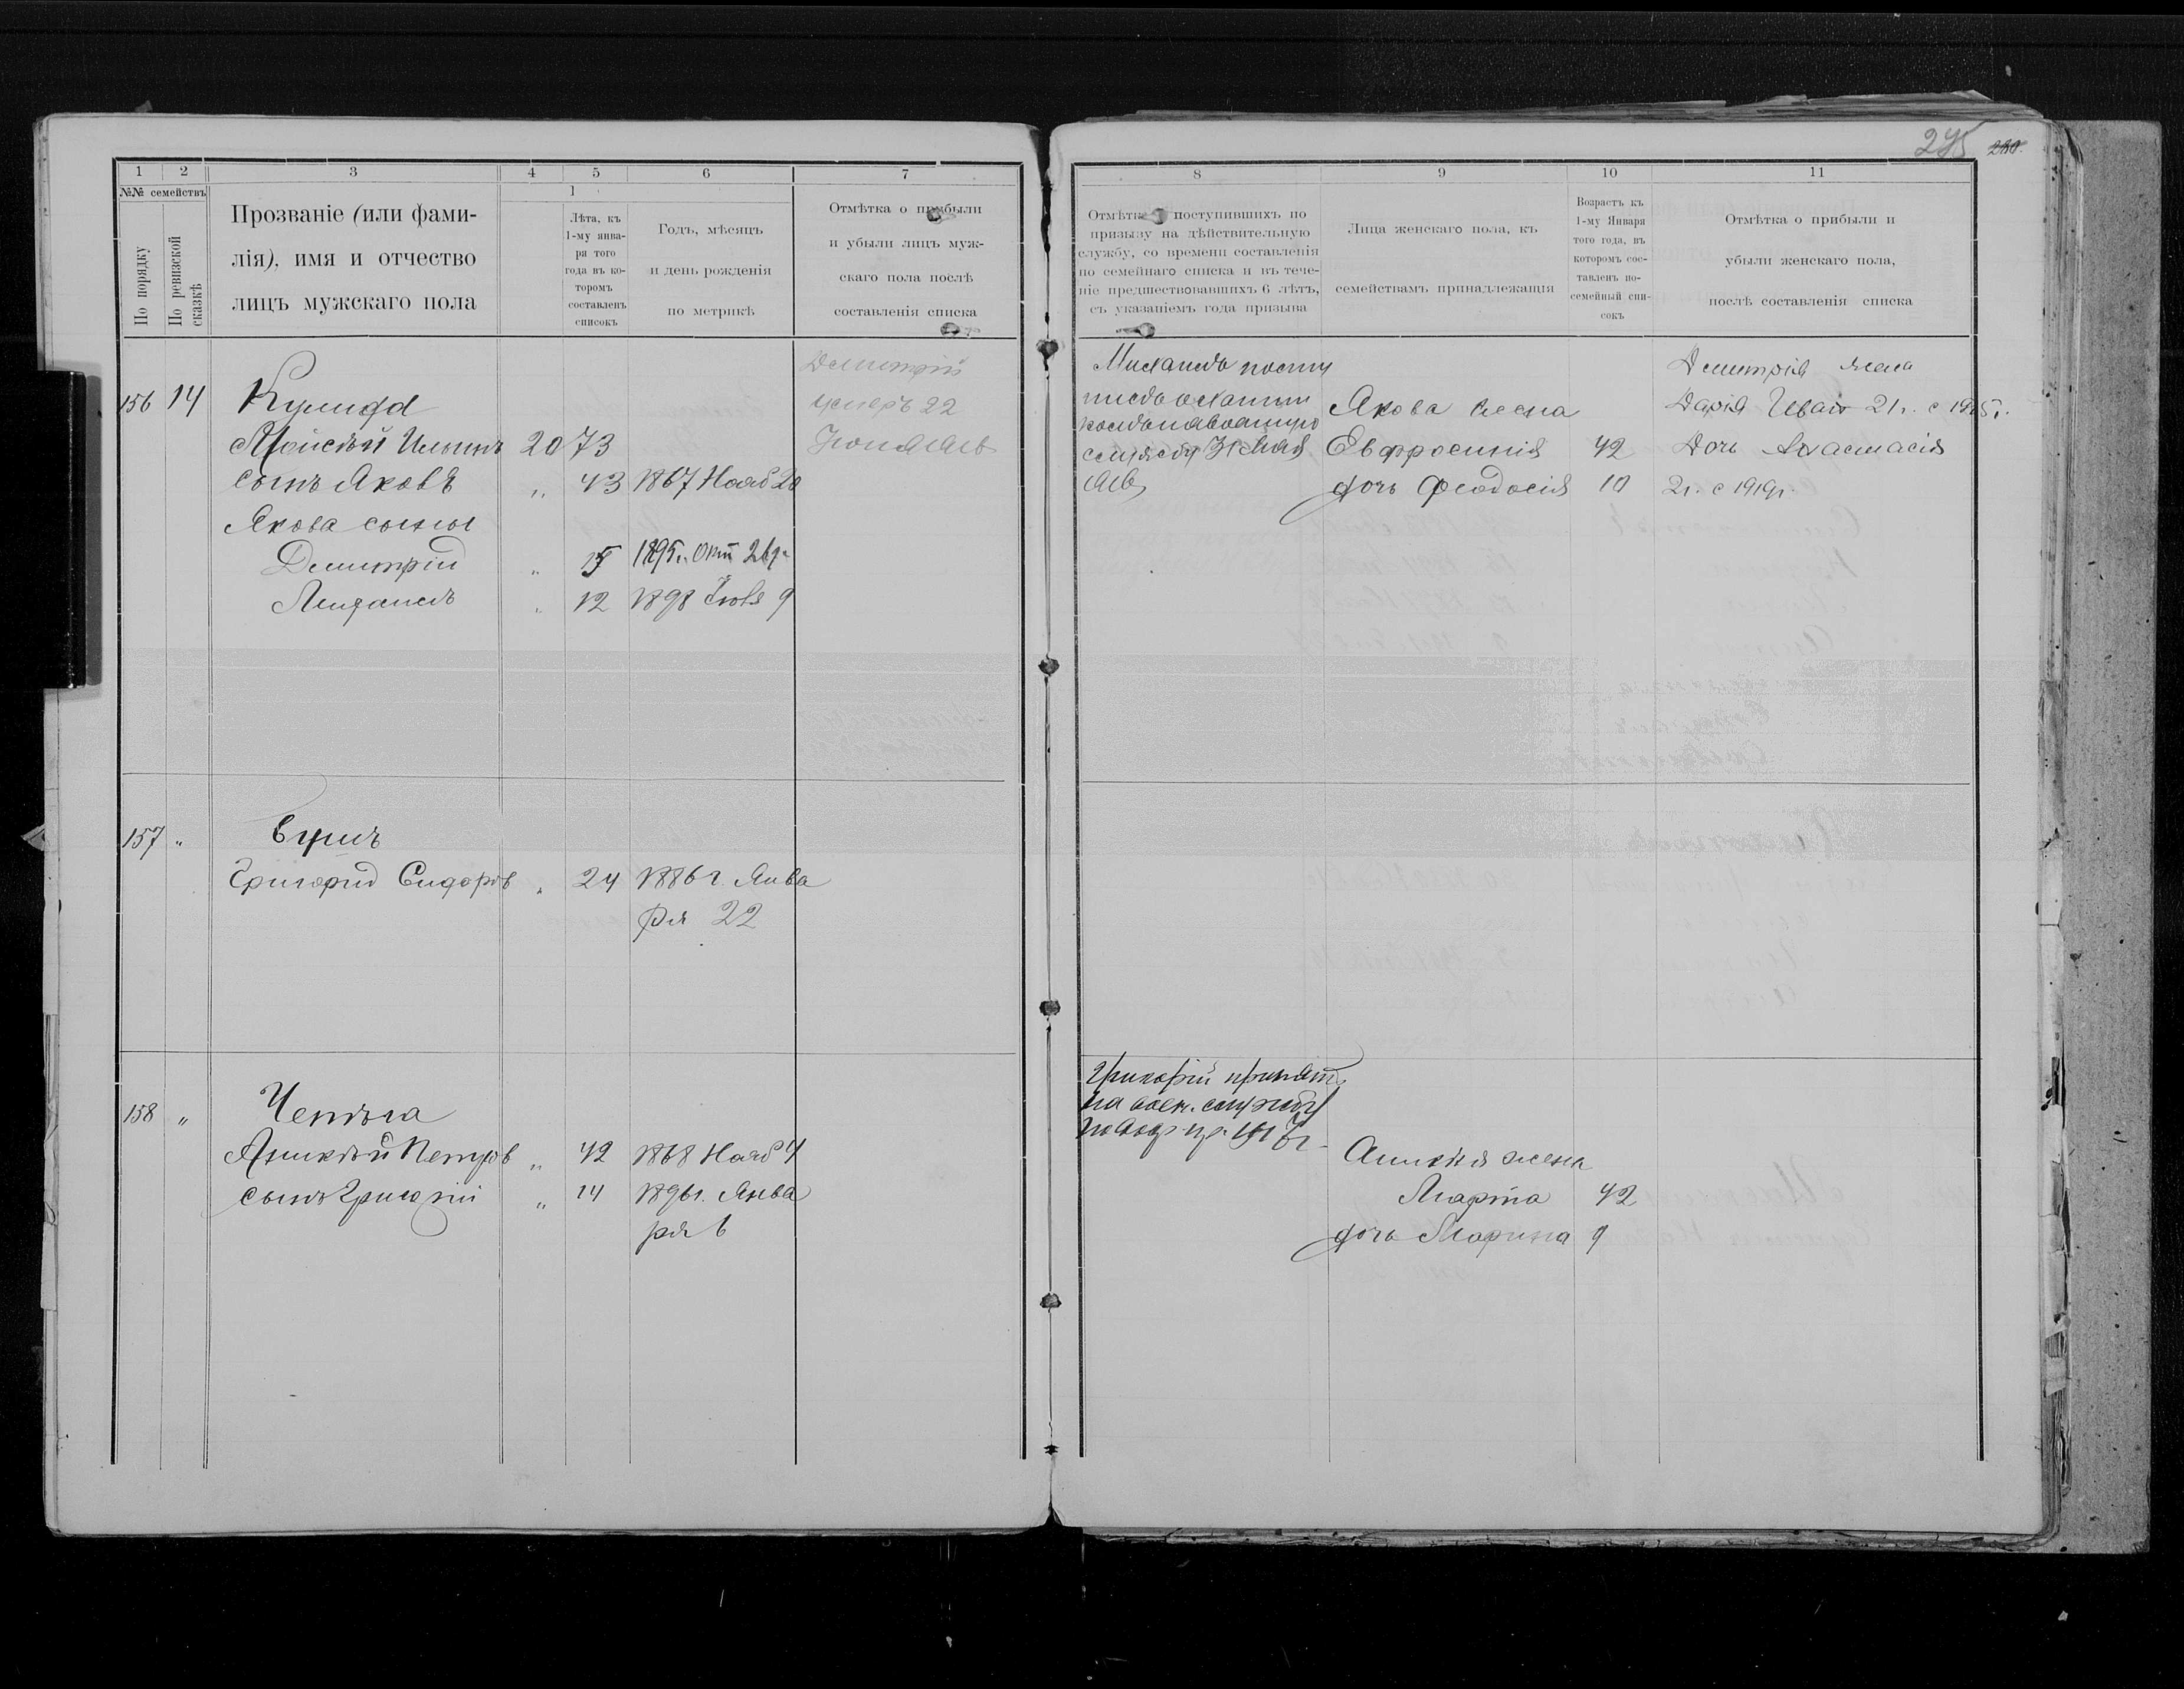 245 280.
1 2 3 4 5 6 7
№№ семействъ
По порядку
По ревизской сказкѣ
Прозваніе (или фами-
лія), имя и отчество
лицъ мужскаго пола
Лѣта, къ
1-му янва-
ря того
года въ ко-
торомъ
составленъ
списокъ
Годъ, мѣсяцъ
и день рожденія
по метрикѣ
Отмѣтка о прибыли
и убыли лицъ муж-
скаго пола послѣ
составленія списка
156 14
Моисей Ильинъ 20 73
сынъ Яковъ „ 43 1867 Нояб 20
Якова сыны
Димитрій „ 15 1895г. Окт 26д.
Михаилъ „ 12 1898 9
Димитрій
умеръ 22
157 „
Григорій Сидоровъ „ 24 1886 г. Янва
ря 22
158 „
Петровъ „ 42 1868 Нояб 4
сынъ Григорій „ 14 1896г. Янва
ря 6
8 9 10 11
Отмѣтка о поступившихъ по
призыву на дѣйствительную
службу, со времени составленія
по семейнаго списка и въ тече-
ніе предшествовавшихъ 6 лѣтъ,
съ указаніемъ года призыва
Лица женскаго пола, къ
семействамъ принадлежащія
Возрастъ къ
1-му Января
того года, въ
которомъ сос-
тавленъ по-
семейный спи-
сокъ
Отмѣтка о прибыли и
убыли женскаго пола,
послѣ составленія списка
Михаилъ посту
Якова жена
Евфросинія 42
дочь Феодосія 10
Димитрія жена
Дарія Иван 21г. с 1915г.
Дочь Анастасія
2г. с 1919г.
Григорій принят
на воен. службу
жена
Марта 42
дочь Марина 9